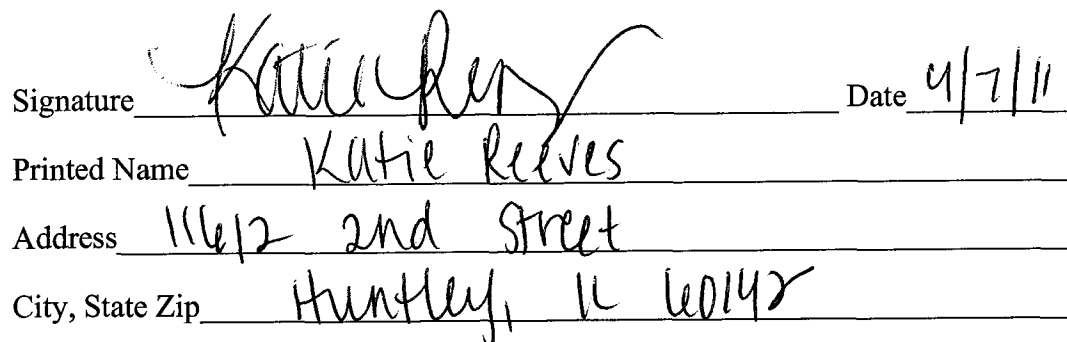 Signature Katie Reeves Date 4/7/11
Printed Name Katie Reeves
Address 11612 2nd Street
City, State Zip Huntley, IL 60142